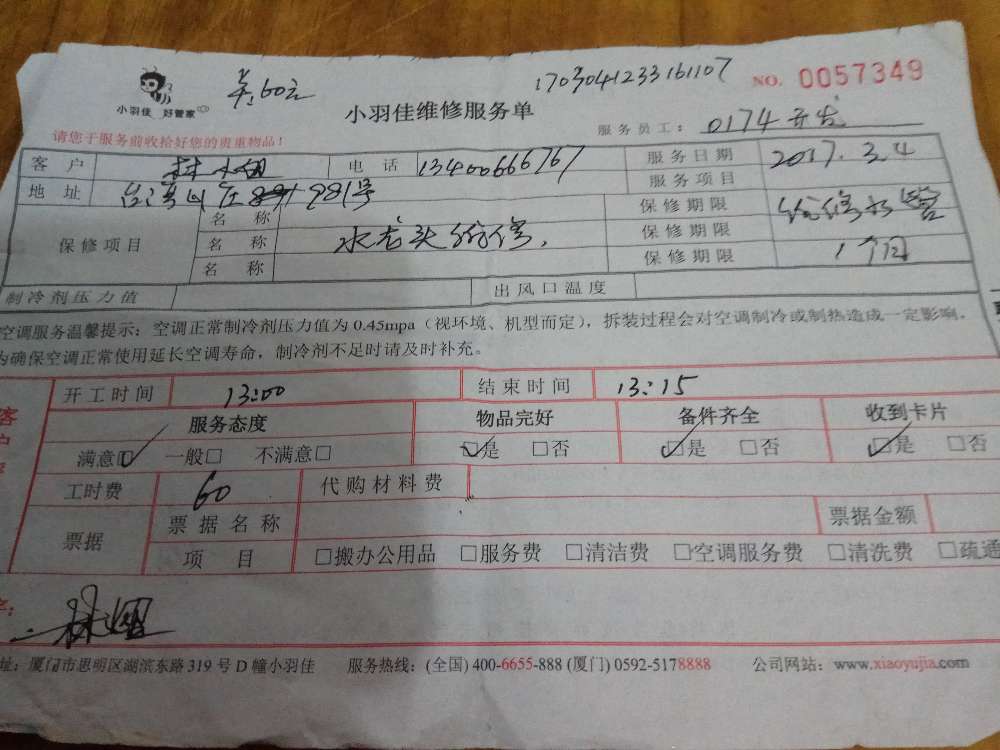 小羽佳 好管家
单:60元
小羽佳维修服务单
1703041233161107
NO. 0057349
请您于服务前收拾好您的贵重物品!
服务员工: 0174
客户 林小姐 电话 13400666767 服务日期 2017.3.4
地址 981号 服务项目 维修水管
保修项目 名称 水龙头维修. 保修期限 1个月
名称 保修期限
名称 保修期限
制冷剂压力值 出风口温度
空调服务温馨提示:空调正常制冷剂压力值为0.45mpa(视环境、机型而定),拆装过程会对空调制冷或制热造成一定影响,
为确保空调正常使用延长空调寿命,制冷剂不足时请及时补充。
开工时间 13:00 结束时间 13:15
服务态度 物品完好 备件齐全 收到卡片
满意☑ 一般□ 不满意□ ☑是 □否 ☑是 □否 ☑是 □否
工时费 60 代购材料费
票据 票据名称 票据金额
项目 □搬办公用品 □服务费 □清洁费 □空调服务费 □清洗费 □疏通
址:厦门市思明区湖滨东路319号D幢小羽佳 服务热线:(全国)400-6655-888(厦门)0592-5178888 公司网站:www.xiaoyujia.com